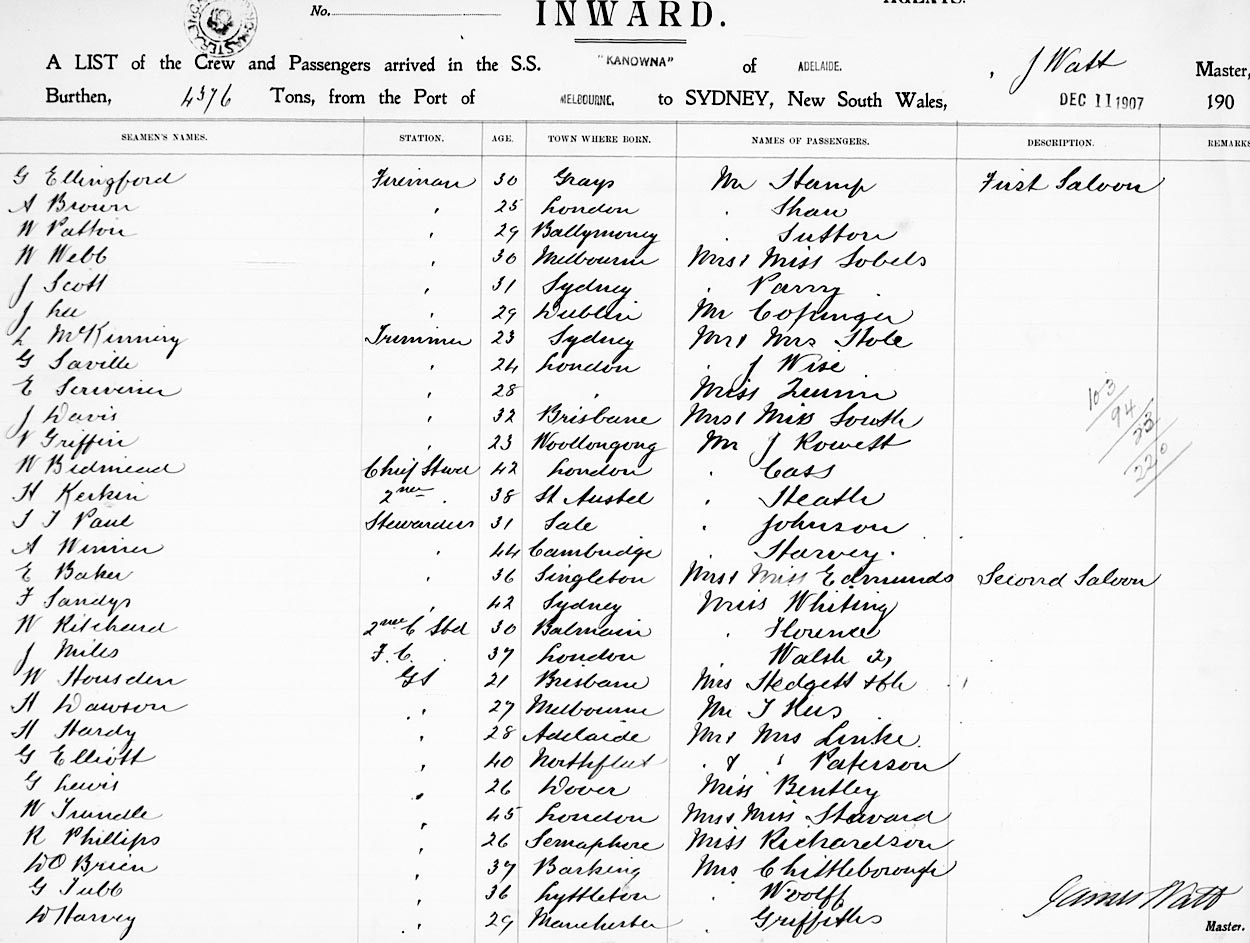 No.
INWARD.
A LIST of the Crew and Passengers arrived in the S.S. "KANOWNA" of ADELAIDE. , J Watt Master,
Burthen, 4376 Tons, from the Port of MELBOURNE, to SYDNEY, New South Wales, DEC 11 1907 190
SEAMEN'S NAMES. STATION. AGE. TOWN WHERE BORN. NAMES OF PASSENGERS. DESCRIPTION. REMARKS
G Ellingford Fireman 30 Grays Mr Stamp First Saloon
A Brown " 25 London " Shaw
W Patton " 29 Ballymoney " Sutton
W Webb " 30 Melbourne Mrs & Miss Sobels
J Scott " 31 Sydney " Parry
J Lee " 29 Dublin Mr Copinger
L McKinnery Trimmer 23 Sydney Mr & Mrs Hole
G Saville " 24 London " J Wise
E " 28 " Miss Quinn
J Davis " 32 Brisbane Mrs & Miss South
Griffin " 23 Woollongong Mr J Rowett
W Bidmead Chief Stwd 42 London " Cass
H Kerkin 2nd " 38 St Austel " Heath
T Paul Stewardess 31 Sale " Johnson
A Winner " 44 Cambridge " Harvey.
E Baker " 36 Singleton Mrs & Miss Edmunds Second Saloon
F Sandys " 42 Sydney Miss Whiting
W Ritchard 2nd C Std 30 Balmain " Florence
J Miles F. C. 37 London " Walsh 2,
W Housden GS 21 Brisbane Mrs Hedgett & ch
H Dawson " 27 Melbourne Mr
H Hardy " 28 Adelaide Mr & Mrs Linke.
G Elliott " 40 Northfleet " & " Paterson
G Lewis " 26 Dover Miss Bentley
W Trundle " 45 London Mrs & Miss Steward
R Phillips " 26 Semaphore Miss Richardson
D O Brien " 37 Barking Mrs Chittleborough
G Tubb " 36 Lyttleton " Woolff
D Harvey " 29 Manchester " Griffiths
103
94
23
220
James Watt
Master.